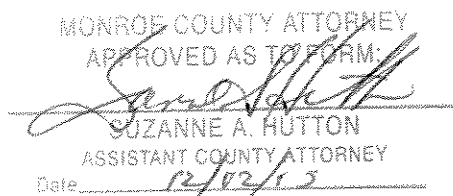 MONROE COUNTY ATTORNEY
APPROVED AS TO FORM:
SUZANNE A. HUTTON
ASSISTANT COUNTY ATTORNEY
Date